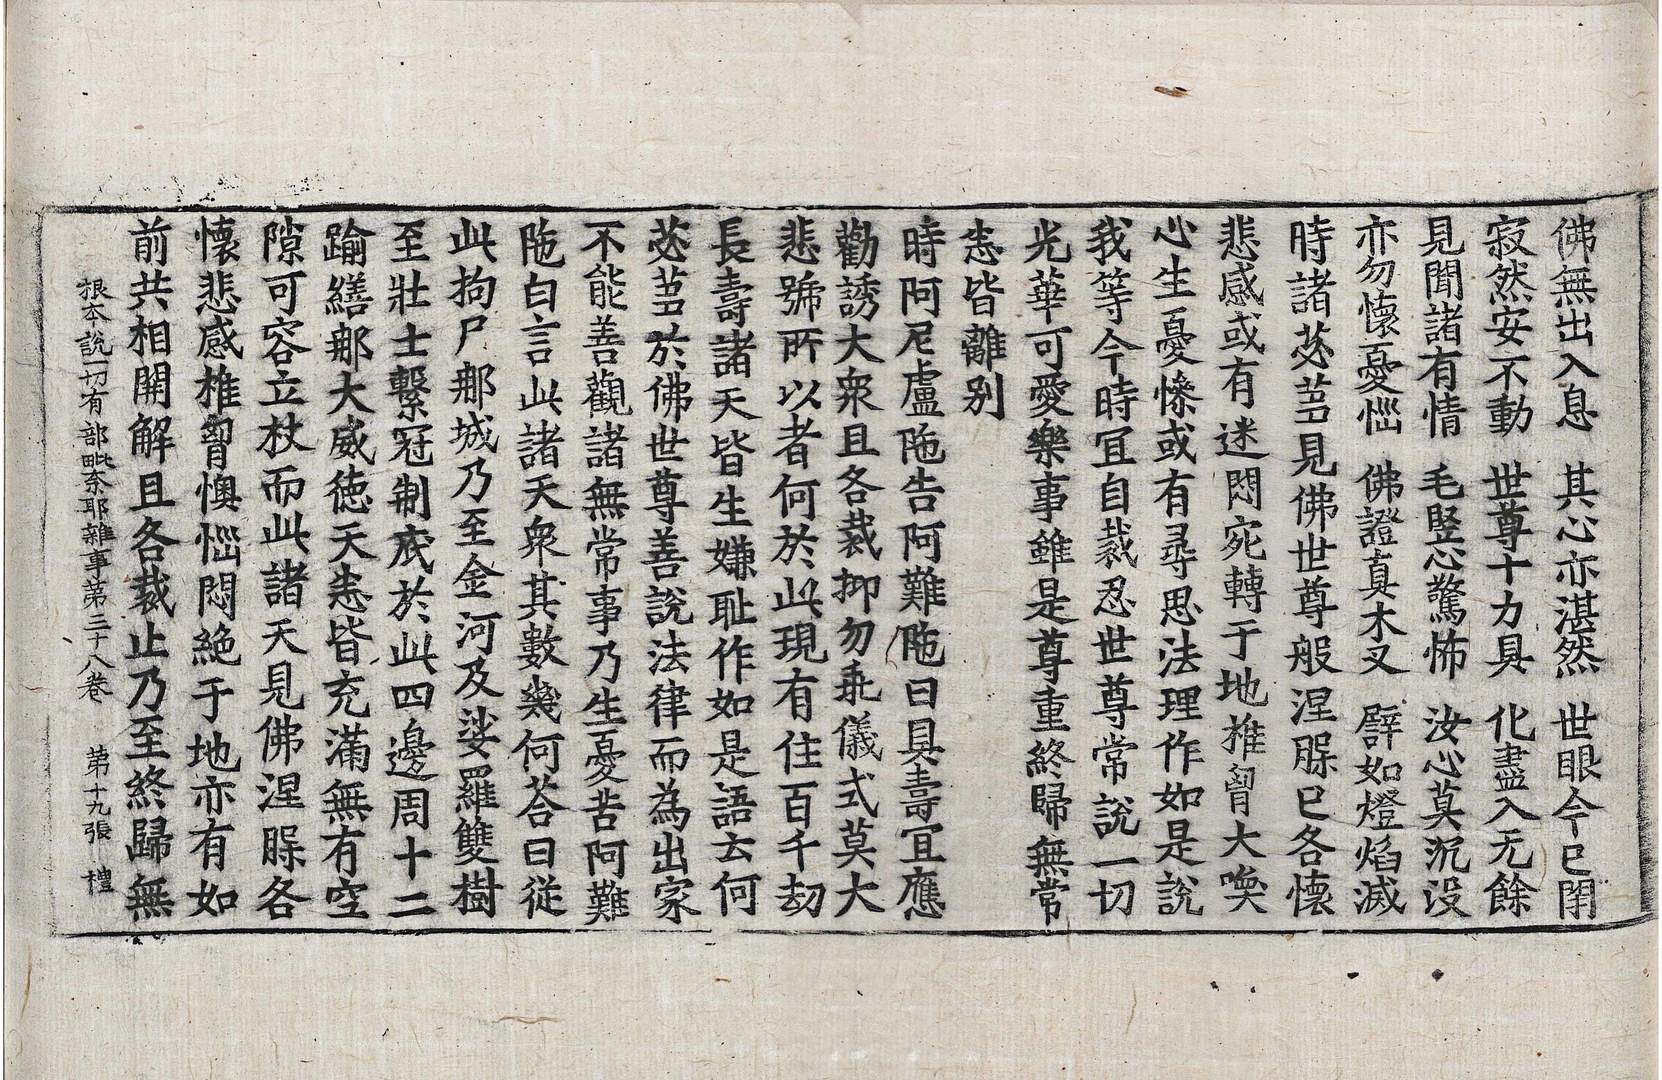 佛無出入息　其心亦湛然　世眼今已閉
寂然安不動　世尊十力具　化盡入无餘
見聞諸有情　毛竪心驚怖　汝心莫沉没
亦勿懷憂惱　佛證真木叉　譬如燈焰滅
時諸苾芻見佛世尊般涅槃已各懷
悲感或有迷悶宛轉于地推胷大喚
心生憂慘或有尋思法理作如是說
我等今時宜自裁忍世尊常說一切
光華可愛樂事雖是尊重終歸無常
悉皆離别
時阿尼盧陁告阿難陁曰具壽宜應
勸誘大衆且各裁抑勿乖儀式莫大
悲號所以者何於此現有住百千劫
長壽諸天皆生嫌耻作如是語云何
苾芻於佛世尊善說法律而為出家
不能善觀諸無常事乃生憂苦阿難
陁白言此諸天衆其數幾何荅曰從
此拘尸那城乃至金河及娑羅雙樹
至壯士繫冠制底於此四邊周十二
踰繕那大威徳天悉皆充滿無有空
隙可容立杖而此諸天見佛涅槃各
懷悲感椎胷懊惱悶絶于地亦有如
前共相開解且各裁止乃至終歸無
根本說一切有部毗奈耶雜事第三十八卷　第十九張　禮